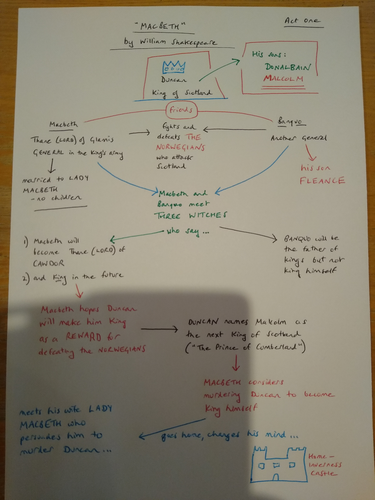 "MACBETH"
Act One
by William Shakespeare
His sons:
DONALBAIN
MALCOLM
Duncan
King of Scotland
friends
Macbeth
Thane (LORD) of Glamis
GENERAL in the King's Army
fights and
defeats THE
NORWEGIANS
who attack
Scotland
Banquo
Another General
his son
FLEANCE
married to LADY
MACBETH
- no children
Macbeth and
Banquo meet
THREE WITCHES
who say...
1) Macbeth will
become Thane (LORD) of
CAWDOR
2) and King in the future
BANQUO will be
the father of
kings but not
king himself
Macbeth hopes Duncan
will make him King
as a REWARD for
defeating the NORWEGIANS
DUNCAN names Malcolm as
the next King of Scotland
("The Prince of Cumberland")
MACBETH considers
murdering Duncan to become
King himself
goes home, changes his mind...
meets his wife LADY
MACBETH who
persuades him to
murder Duncan...
Home -
Inverness
Castle